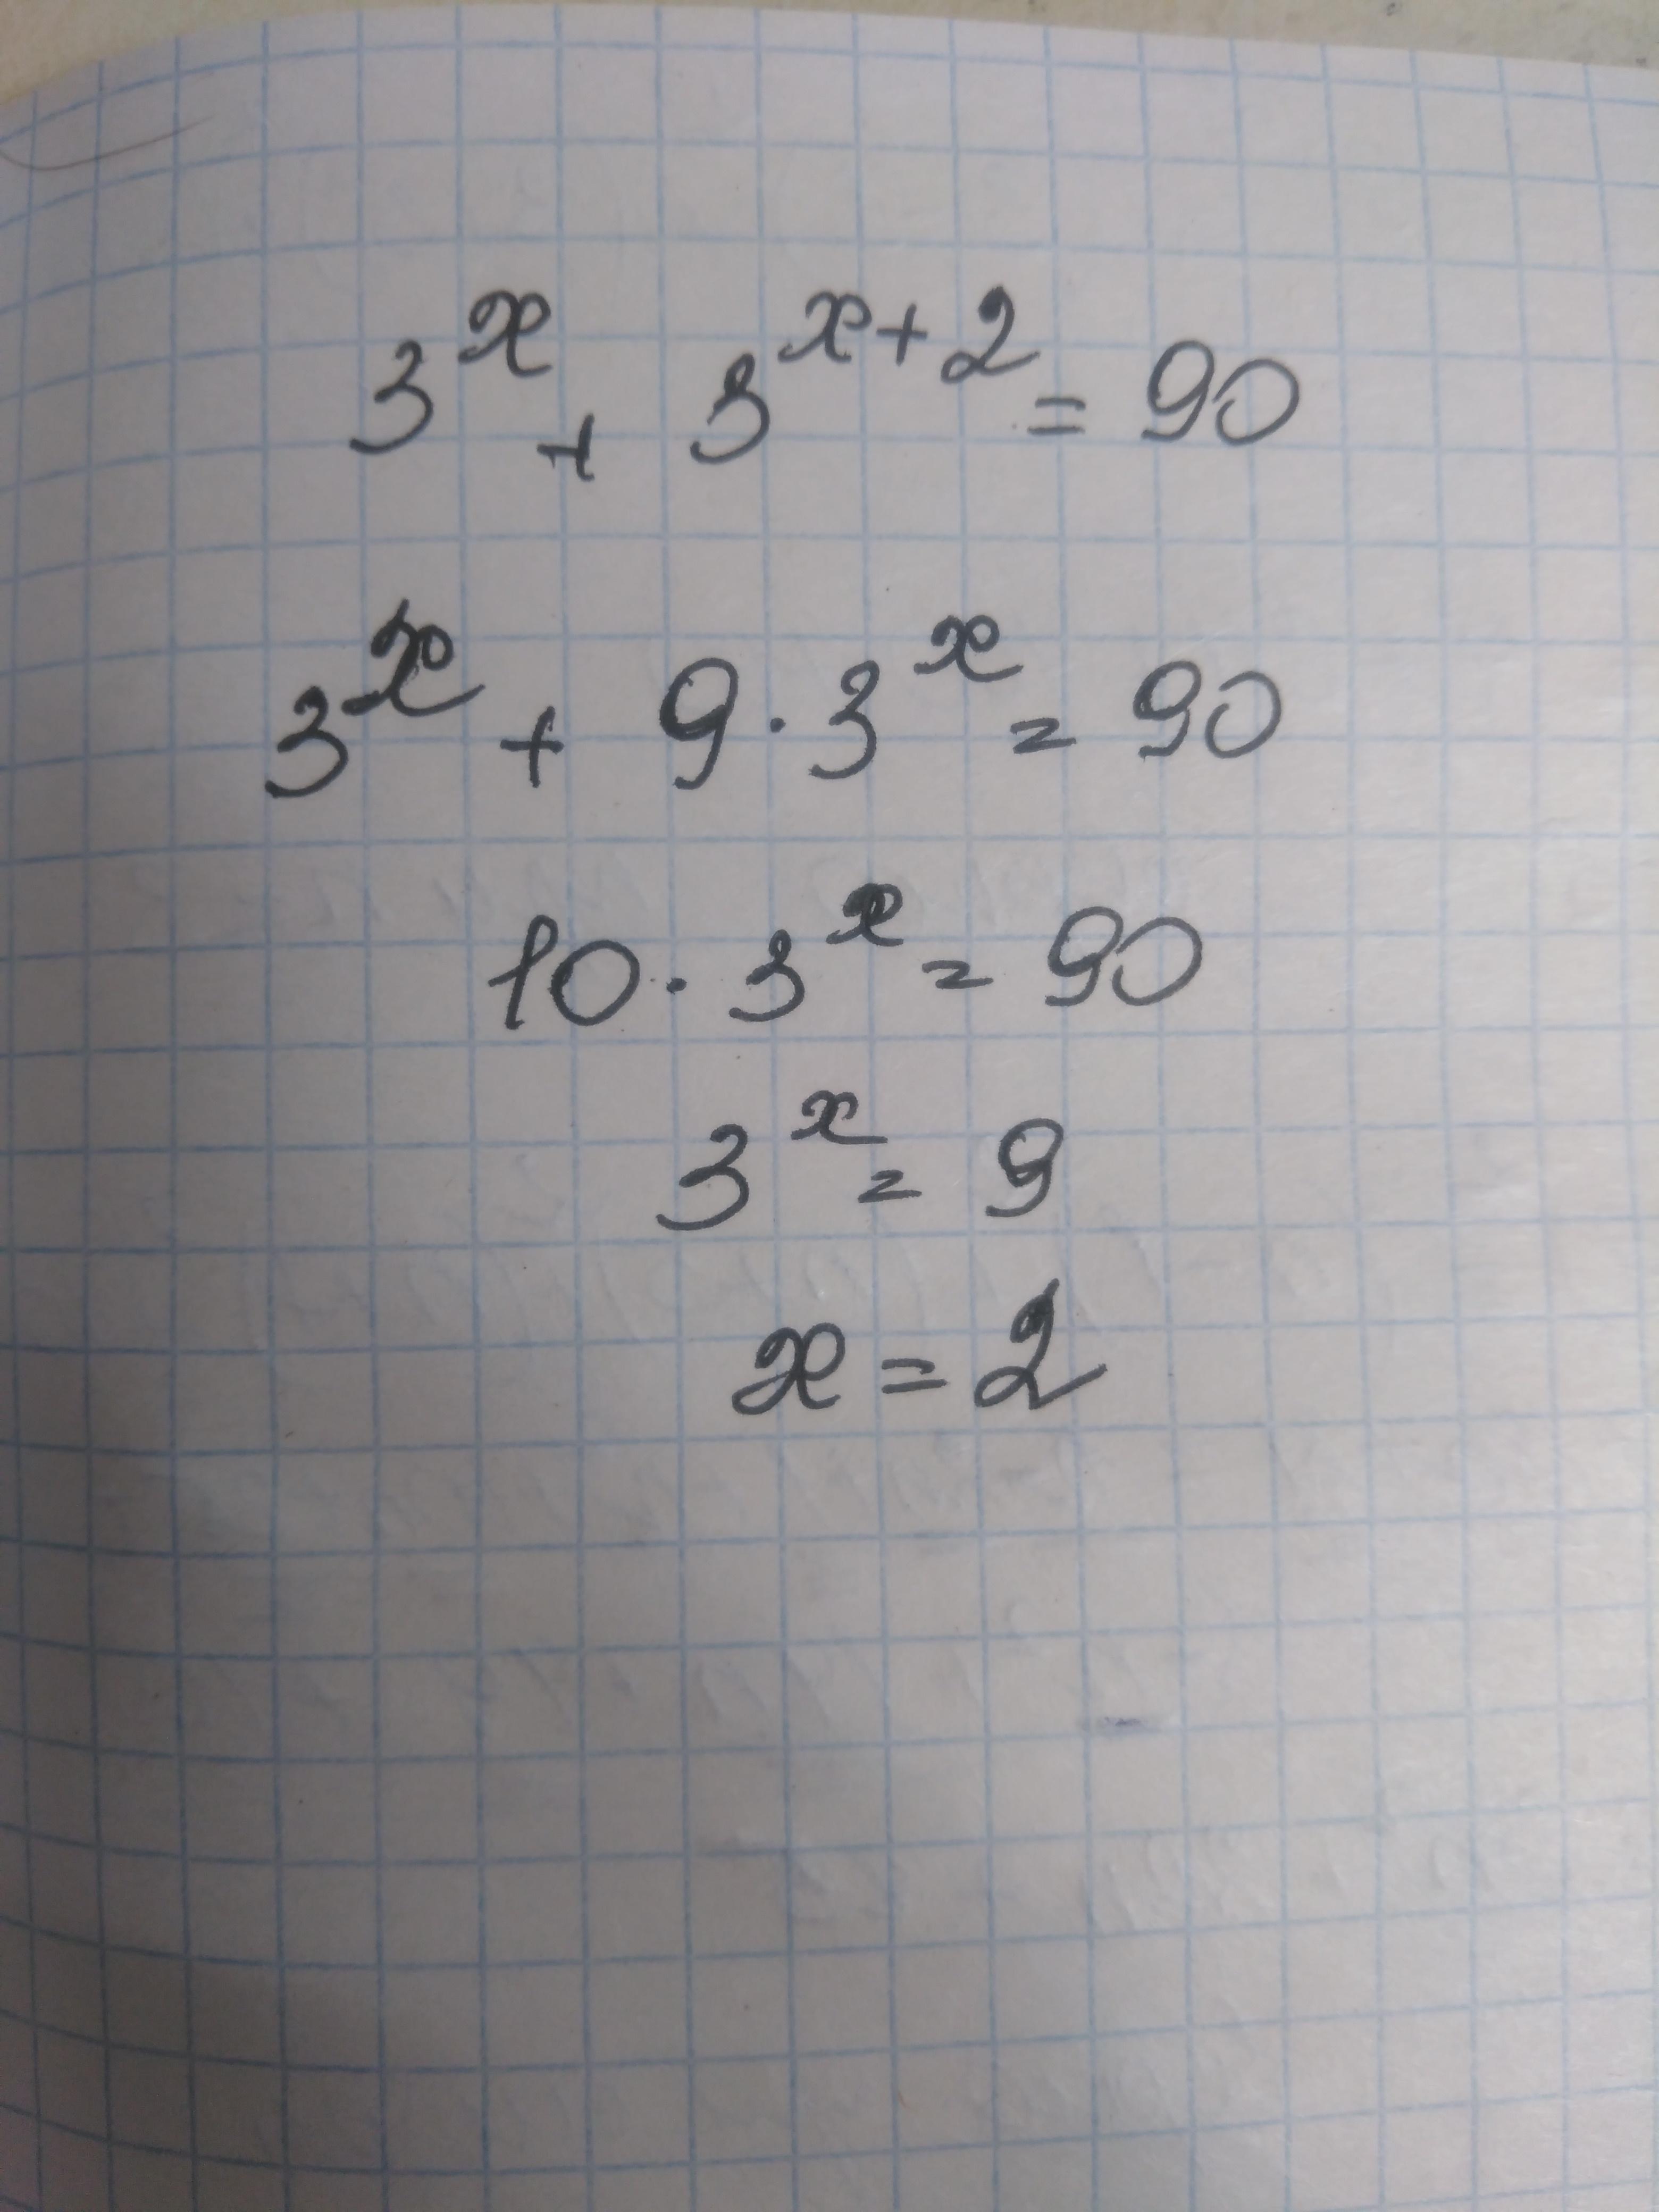 3^x + 3^{x+2} = 90
3^x + 9 · 3^x = 90
10 · 3^x = 90
3^x = 9
x = 2